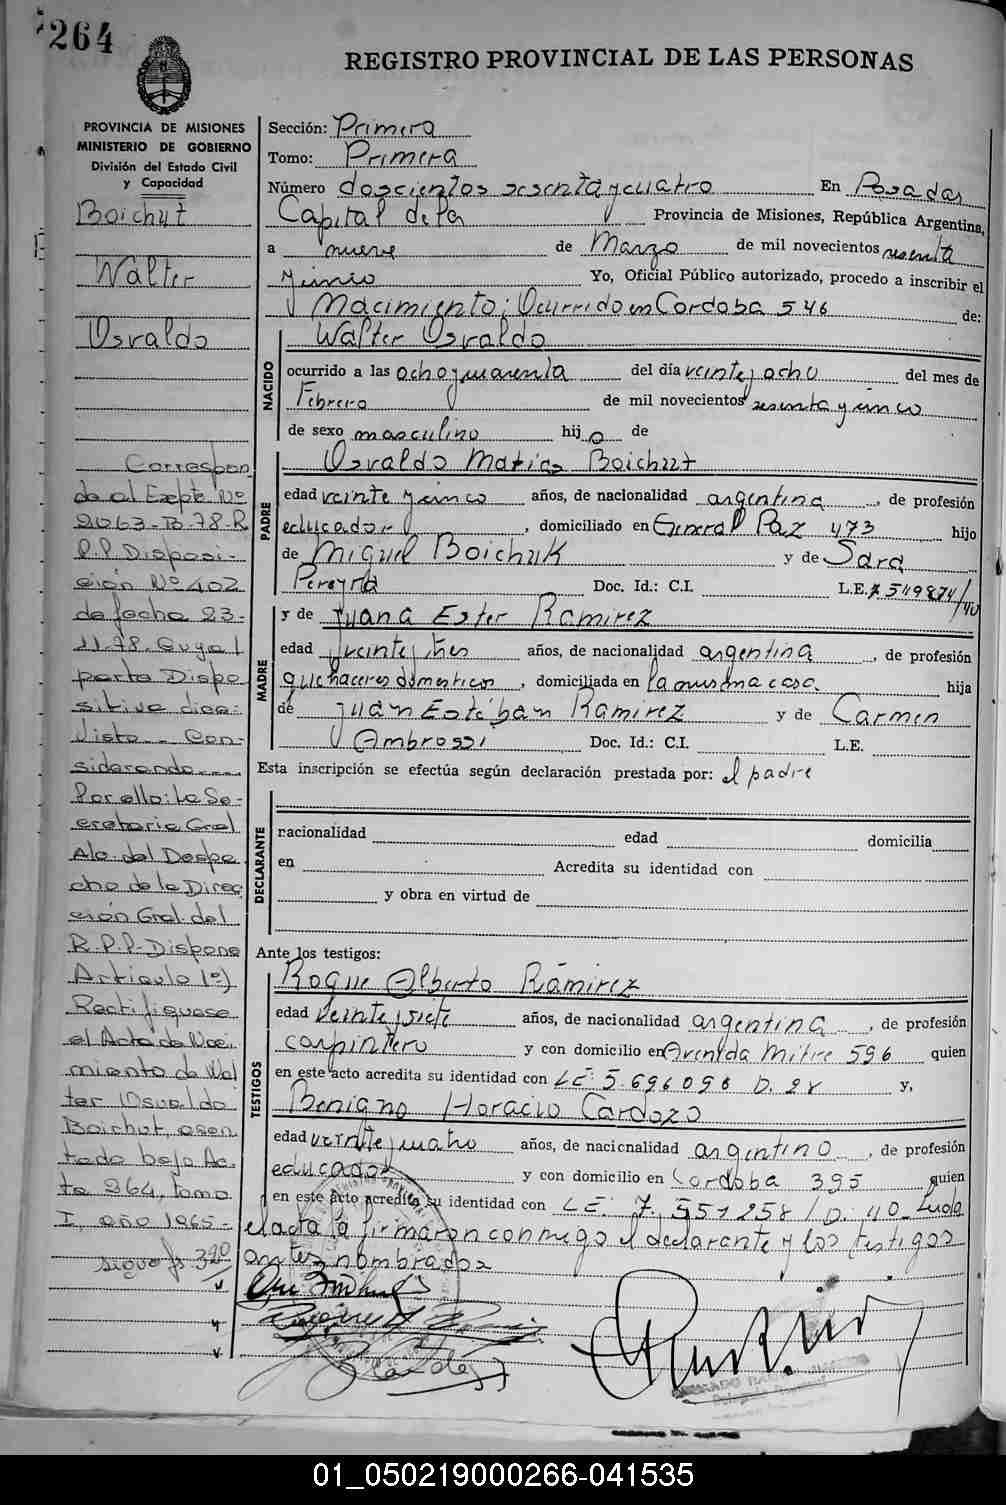 264
REGISTRO PROVINCIAL DE LAS PERSONAS
PROVINCIA DE MISIONES
MINISTERIO DE GOBIERNO
División del Estado Civil
y Capacidad
Boichut
Walter
Osvaldo
Correspon
de al Expte Nº
2063-B-78-R
P.P Disposi-
ción Nº 402
de fecha 23-
11-78. Cuya
parte Dispo
sitiva dice:
Visto - Con-
siderando
Por ello: La Se-
cretaria Gral
A/c. del Despa
cho de la Direc
ción Gral. del
R.P.P. Dispone
Articulo 1º)
Rectifiquese
el Acta de Naci
miento de Wal
ter Osvaldo
Boichut, asen
tado bajo Ac-
ta 264, tomo
I, año 1965-
sigue fs 390
Sección: Primera
Tomo: Primera
Número doscientos sesenta y cuatro En Posadas
Capital de la Provincia de Misiones, República Argentina,
a nueve de Marzo de mil novecientos sesenta
y cinco Yo, Oficial Público autorizado, procedo a inscribir el
Nacimiento; Ocurrido en Cordoba 546 de:
NACIDO
Walter Osvaldo
ocurrido a las ocho y cuarenta del día veinte y ocho del mes de
Febrero de mil novecientos sesenta y cinco
de sexo masculino hijo de
PADRE
Osvaldo Matias Boichut
edad veinte y cinco años, de nacionalidad argentina, de profesión
educador, domiciliado en General Paz 473 hijo
de Miguel Boichuk y de Sara
Pereyra Doc. Id.: C.I. L.E.
MADRE
y de Juana Ester Ramirez
edad veinte y tres años, de nacionalidad argentina, de profesión
quehaceres domesticos, domiciliada en la misma casa. hija
de Juan Estéban Ramirez y de Carmen
Ambrossi Doc. Id.: C.I. L.E.
Esta inscripción se efectúa según declaración prestada por: el padre
DECLARANTE
nacionalidad edad domicilia
en Acredita su identidad con
y obra en virtud de
Ante los testigos:
TESTIGOS
Roque Alberto Rámirez
edad veinte y siete años, de nacionalidad argentina, de profesión
carpintero y con domicilio en Avenida Mitre 596 quien
en este acto acredita su identidad con LE: 5.696096 D. 28 y,
Benigno Horacio Cardozo
edad veinte y cuatro años, de nacionalidad argentino, de profesión
educador y con domicilio en Cordoba 395 quien
en este acto acredita su identidad con LE: 7.551258 / D. 40_ Leida
el acta la firmaron conmigo el declarante y los testigos
antes nombrados
01_050219000266-041535